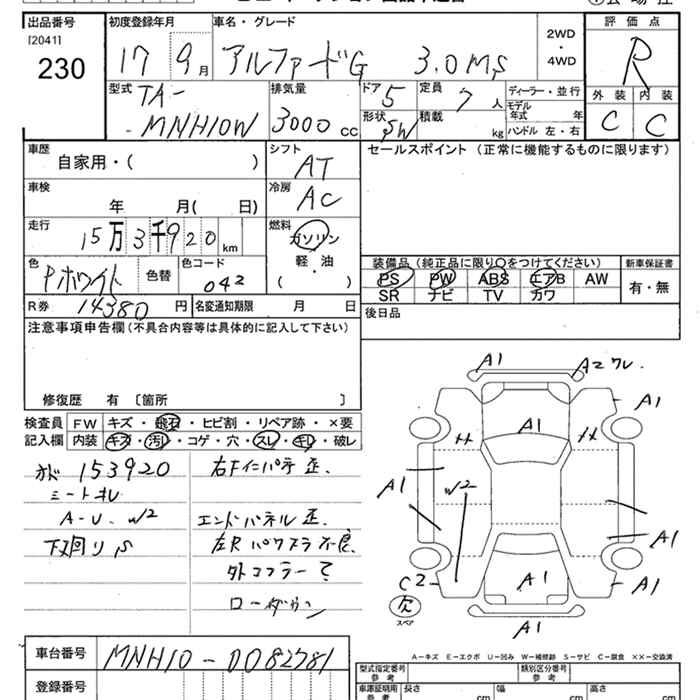 出品番号
[2041]
230
初度登録年月
17 9月
車名・グレード
アルファードG 3.0MS
2WD
・
4WD
評価点
R
外装 内装
C C
型式
TA-
MNH10W
排気量
3000 cc
ドア
5
定員
7 人
形状
SW
積載
kg
ディーラー・並行
モデル
年式 年
ハンドル 左・右
車歴
自家用・( )
シフト
AT
セールスポイント (正常に機能するものに限ります)
車検
年 月( 日)
冷房
AC
走行
15万3千920km
燃料
ガソリン
軽・油
( )
色
Pホワイト
色替
色コード
042
装備品 (純正品に限り○をつけてください)
PS PW ABS エアB AW
SR ナビ TV カワ
新車保証書
有・無
R券 14380円
名変通知期限 月 日
後日品
注意事項申告欄(不具合内容等は具体的に記入して下さい)
修復歴 有 〔箇所 〕
検査員
記入欄
FW キズ・飛石・ヒビ割・リペア跡・×要
内装 キズ・汚れ・コゲ・穴・スレ・キレ・破レ
オド 153920
シートキレ
A-U. W2
下廻りS
右Fインパネ歪.
エンドパネル歪.
左Rパワスラ不良.
外コフラー?
ローダウン
A1
A2ワレ
A1
A1
A1
W2
A1
C2
A1
A1
A1
欠
スペア
A1
A-キズ E-エクボ U-凹み W-補修跡 S-サビ C-腐食 ××-交換済
車台番号
MNH10-0082781
登録番号
型式指定番号
参考
類別区分番号
参考
車庫証明用
参考
長さ cm
幅 cm
高さ cm